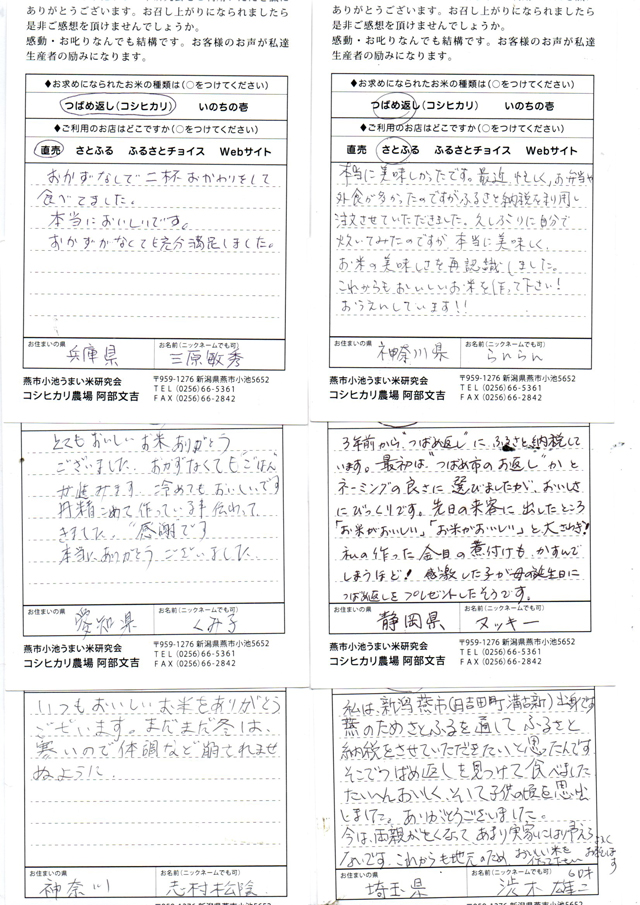 ありがとうございます。お召し上がりになられましたら
是非ご感想を頂けませんでしょうか。
感動・お叱りなんでも結構です。お客様のお声が私達
生産者の励みになります。
◆お求めになられたお米の種類は(○をつけてください)
つばめ返し(コシヒカリ) いのちの壱
◆ご利用のお店はどこですか(○をつけてください)
直売 さとふる ふるさとチョイス Webサイト
おかずなしで二杯おかわりをして
食べてました。
本当においしいです。
おかずがなくても充分満足しました。
お住まいの県 お名前(ニックネームでも可)
兵庫県 三原敏秀
燕市小池うまい米研究会 〒959-1276 新潟県燕市小池5652
コシヒカリ農場 阿部文吉 TEL (0256)66-5361
FAX (0256)66-2842
ありがとうございます。お召し上がりになられましたら
是非ご感想を頂けませんでしょうか。
感動・お叱りなんでも結構です。お客様のお声が私達
生産者の励みになります。
◆お求めになられたお米の種類は(○をつけてください)
つばめ返し(コシヒカリ) いのちの壱
◆ご利用のお店はどこですか(○をつけてください)
直売 さとふる ふるさとチョイス Webサイト
本当に美味しかったです。最近忙しく、お弁当や
外食が多かったのですがふるさと納税を利用し
注文させていただきました。久しぶりに自分で
炊いてみたのですが本当に美味しく、
お米の美味しさを再認識しました。
これからもおいしいお米を作って下さい!
おうえんしています!!
お住まいの県 お名前(ニックネームでも可)
神奈川県 らんらん
燕市小池うまい米研究会 〒959-1276 新潟県燕市小池5652
コシヒカリ農場 阿部文吉 TEL (0256)66-5361
FAX (0256)66-2842
とてもおいしいお米ありがとう
ございました おかずなくてもごはん
が進みます 冷めてもおいしいです
丹精こめて作っている事伝わって
きました 感謝です
本当にありがとうございました
お住まいの県 お名前(ニックネームでも可)
愛知県 くみ子
燕市小池うまい米研究会 〒959-1276 新潟県燕市小池5652
コシヒカリ農場 阿部文吉 TEL (0256)66-5361
FAX (0256)66-2842
3年前から"つばめ返し"にふるさと納税して
います。最初は"つばめ市のお返し"かと
ネーミングの良さに選びましたが、おいしさ
にびっくりです。先日の来客に出したところ
「お米がおいしい」「お米がおいしい」と大さわぎ!
私の作った金目の煮付けも、かすんで
しまうほど! 感激した子が母の誕生日に
つばめ返しをプレゼントしたそうです。
お住まいの県 お名前(ニックネームでも可)
静岡県 ヌッキー
燕市小池うまい米研究会 〒959-1276 新潟県燕市小池5652
コシヒカリ農場 阿部文吉 TEL (0256)66-5361
FAX (0256)66-2842
いつもおいしいお米をありがとう
ございます。まだまだ冬は、
寒いので体調など崩されませ
ぬように
お住まいの県 お名前(ニックネームでも可)
神奈川 志村松陰
私は、新潟燕市(旧吉田町溝古新)出身です
燕のためさとふるを通してふるさと
納税をさせていただきたいと思ったんです
そこでつばめ返しを見つけて食べました
たいへんおいしく、そして子供の頃を思い出
しました。ありがとうございました。
今は、両親が亡くなって あまり実家には行えろ
ないです。これからも地元のため おいしい米を
作って下さい
お願いします
お住まいの県 お名前(ニックネームでも可)
埼玉県 渋木 雄二 60才